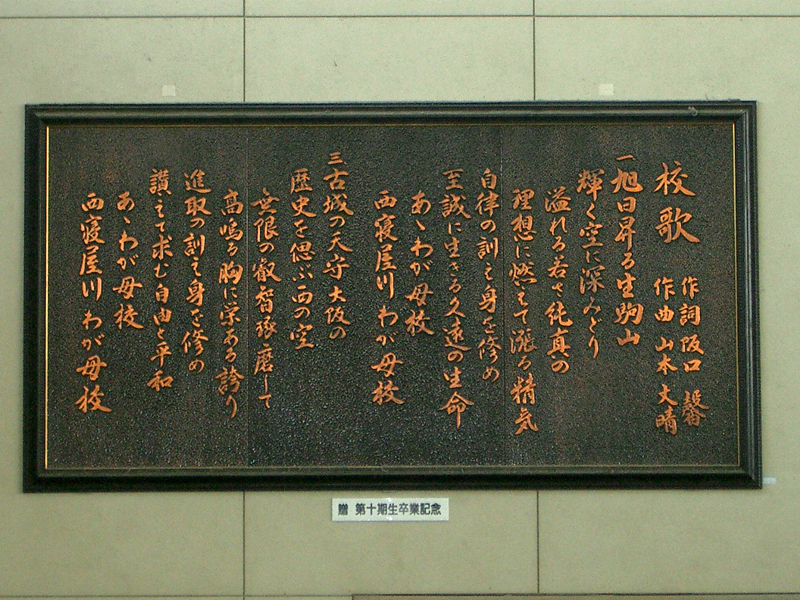 校歌
作詞 阪口
作曲 山本 丈晴
一 旭日昇る生駒山
輝く空に深みどり
溢れる若さ純真の
理想に燃えて漲る精気
自律の訓え身を修め
至誠に生きる久遠の生命
あゝわが母校
西寝屋川わが母校
三 古城の天守大阪の
歴史を偲ぶ西の空
無限の叡智琢磨して
高鳴る胸に栄ある誇り
進取の訓え身を修め
讃えて求む自由と平和
あゝわが母校
西寝屋川わが母校
贈 第十期生卒業記念